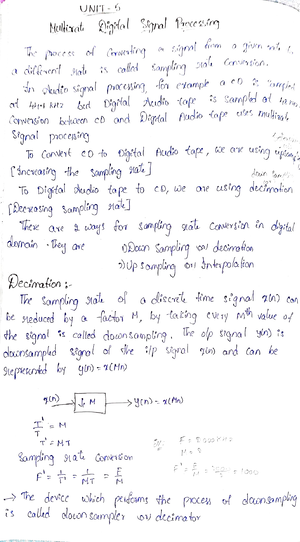 UNIT-5
Multirate Digital Signal Processing
The process of converting a signal from a given rate
a different rate is called sampling rate conversion.
In Audio signal processing, for example a CD is sampled
at 44.1 KHz but Digital Audio tape is sampled at
Conversion between CD and Digital Audio tape uses multirate
Signal processing
To Convert CD to Digital Audio tape, we are using upsampling
[Increasing the sampling rate]
To Digital Audio tape to CD, we are using decimation
[Decreasing sampling rate]
There are 2 ways for sampling rate conversion in digital
domain. They are 1) Down Sampling or decimation
2) Up sampling or Interpolation
Decimation :-
The sampling rate of a discrete time signal x(n) can
be reduced by a factor M, by taking every Mth value of
the signal is called downsampling. The o/p signal y(n) is
downsampled signal of the i/p signal x(n) and can be
represented by y(n) = x(Mn)
x(n) → ↓ M → y(n) = x(Mn)
T'/T = M
T' = MT
Sampling rate Conversion
F' = 1/T' = 1/MT = F/M
→ The device which performs the process of downsampling
is called downsampler or decimator